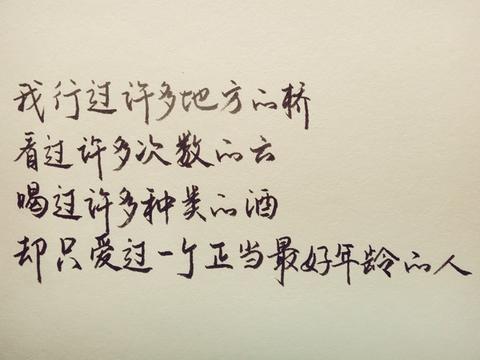 我行过许多地方的桥
看过许多次数的云
喝过许多种类的酒
却只爱过一个正当最好年龄的人